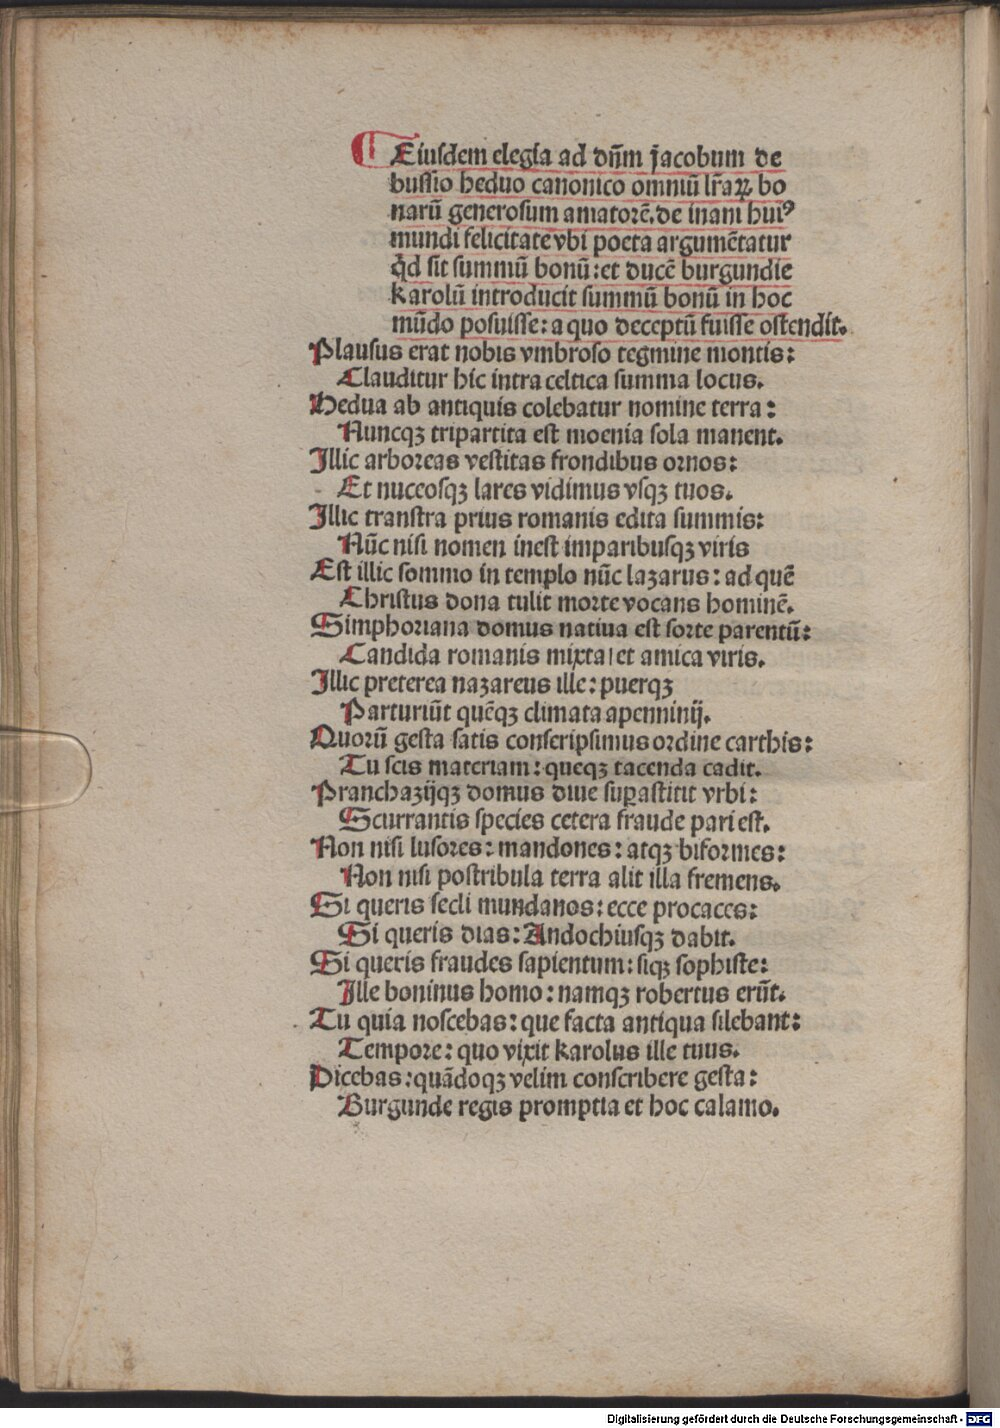 Eiusdem elegia ad dn̄m jacobum de
bussio heduo canonico omniū lr̄aꝝ bo
narū generosum amatorē. de inani huiꝰ
mundi felicitate vbi poeta argumētatur
qd̄ sit summū bonū: et ducē burgundie
karolū introducit summū bonū in hoc
mūdo posuisse: a quo deceptū fuisse ostendit.
Plausus erat nobis vmbroso tegmine montis:
Clauditur hic intra celtica summa locus.
Hedua ab antiquis colebatur nomine terra:
Nuncqꝫ tripartita est moenia sola manent.
Illic arboreas vestitas frondibus ornos:
Et nuceosqꝫ lares vidimus vsqꝫ tuos.
Illic transtra prius romanis edita summis:
Nūc nisi nomen inest imparibusqꝫ viris
Est illic sommo in templo nūc lazarus: ad quē
Christus dona tulit morte vocans hominē.
Simphoriana domus natiua est sorte parentū:
Candida romanis mixta/ et amica viris.
Illic preterea nazareus ille: puerqꝫ
Parturiūt quēqꝫ climata apenninij.
Quorū gesta satis conscripsimus ordine carthis:
Tu scis materiam: queqꝫ tacenda cadit.
Pranchazijqꝫ domus diue suꝑastitit vrbi:
Scurrantis species cetera fraude pari est.
Non nisi lusores: mandones: atqꝫ biformes:
Non nisi postribula terra alit illa fremens.
Si queris secli mundanos: ecce procaces:
Si queris dias: Andochiusqꝫ dabit.
Si queris fraudes sapientum: siqꝫ sophiste:
Ille boninus homo: namqꝫ robertus erūt.
Tu quia noscebas: que facta antiqua silebant:
Tempore: quo vixit karolus ille tuus.
Dicebas: quādoqꝫ velim conscribere gesta:
Burgunde regis promptia et hoc calamo.
Digitalisierung gefördert durch die Deutsche Forschungsgemeinschaft - DFG